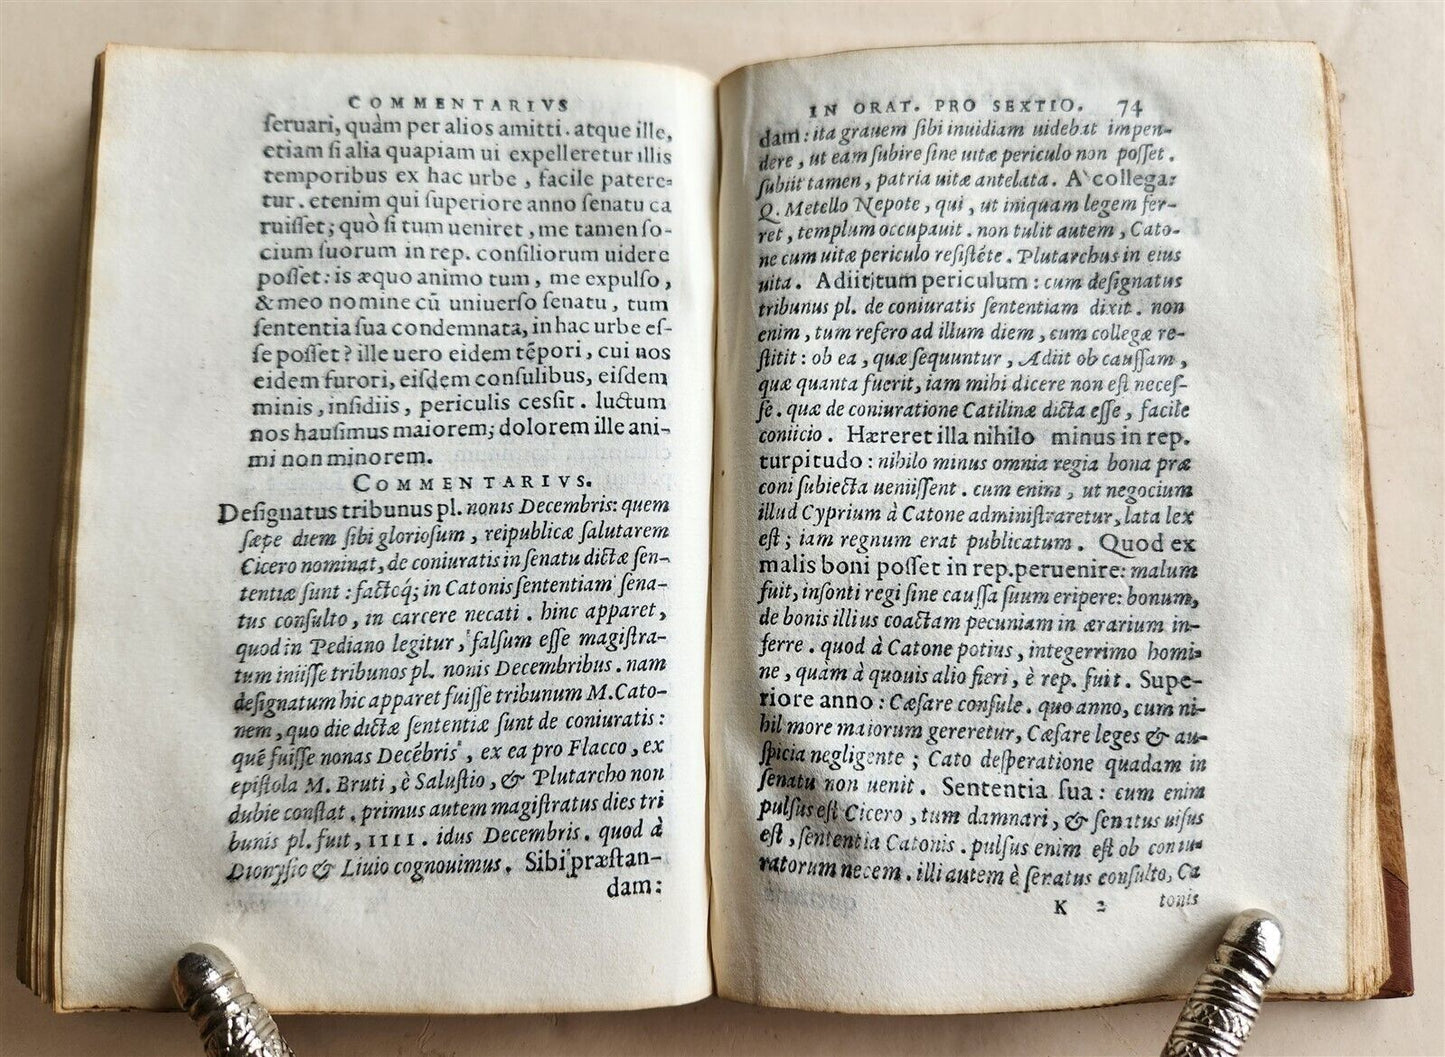 COMMENTARIVS
ſeruari, quàm per alios amitti. atque ille,
etiam ſi alia quapiam ui expelleretur illis
temporibus ex hac urbe, facile patere=
tur. etenim qui ſuperiore anno ſenatu ca
ruiſſet; quò ſi tum ueniret, me tamen ſo-
cium ſuorum in rep. conſiliorum uidere
poſſet: is æquo animo tum, me expulſo,
& meo nomine cū uniuerſo ſenatu, tum
ſententia ſua condemnata, in hac urbe eſ-
ſe poſſet? ille uero eidem tēpori, cui nos
eidem furori, eiſdem conſulibus, eiſdem
minis, inſidiis, periculis ceſsit. luctum
nos hauſimus maiorem; dolorem ille ani-
mi non minorem.
COMMENTARIVS.
Deſignatus tribunus pl. nonis Decembris: quem
ſæpe diem ſibi glorioſum, reipublicæ ſalutarem
Cicero nominat, de coniuratis in ſenatu dictæ ſen-
tentiæ ſunt: factoq́; in Catonis ſententiam ſena-
tus conſulto, in carcere necati. hinc apparet,
quod in Pediano legitur, falſum eſſe magiſtra-
tum iniiſſe tribunos pl. nonis Decembribus. nam
deſignatum hic apparet fuiſſe tribunum M. Cato-
nem, quo die dictæ ſententiæ ſunt de coniuratis:
quē fuiſſe nonas Decēbris, ex ea pro Flacco, ex
epiſtola M. Bruti, è Saluſtio, & Plutarcho non
dubie conſtat. primus autem magiſtratus dies tri
bunis pl. fuit, IIII. idus Decembris. quod à
Dionyſio & Liuio cognouimus. Sibi præſtan-
dam:
IN ORAT. PRO SEXTIO. 74
dam: ita grauem ſibi inuidiam uidebat impen-
dere, ut eam ſubire ſine uitæ periculo non poſſet.
ſubiit tamen, patria uitæ antelata. A collega:
Q. Metello Nepote, qui, ut iniquam legem fer-
ret, templum occupauit. non tulit autem, Cato-
ne cum uitæ periculo reſiſtēte. Plutarchus in eius
uita. Adiit tum periculum: cum deſignatus
tribunus pl. de coniuratis ſententiam dixit. non
enim, tum refero ad illum diem, cum collegæ re-
ſtitit: ob ea, quæ ſequuntur, Adiit ob cauſſam,
quæ quanta fuerit, iam mihi dicere non eſt neceſ-
ſe. quæ de coniuratione Catilinæ dicta eſſe, facile
coniicio. Hæreret illa nihilo minus in rep.
turpitudo: nihilo minus omnia regia bona præ
coni ſubiecta ueniiſſent. cum enim, ut negocium
illud Cyprium à Catone adminiſtraretur, lata lex
eſt; iam regnum erat publicatum. Quod ex
malis boni poſſet in rep. peruenire: malum
fuit, inſonti regi ſine cauſſa ſuum eripere: bonum,
de bonis illius coactam pecuniam in ærarium in-
ferre. quod à Catone potius, integerrimo homi=
ne, quàm à quouis alio fieri, è rep. fuit. Supe-
riore anno: Cæſare conſule. quo anno, cum ni-
hil more maiorum gereretur, Cæſare leges & au-
ſpicia negligente; Cato deſperatione quadam in
ſenatu non uenit. Sententia ſua: cum enim
pulſus eſt Cicero, tum damnari, & ſenatus uiſus
eſt, ſententia Catonis. pulſus enim eſt ob coniu-
ratorum necem. illi autem è ſenatus conſulto, Ca
K 2 tonis